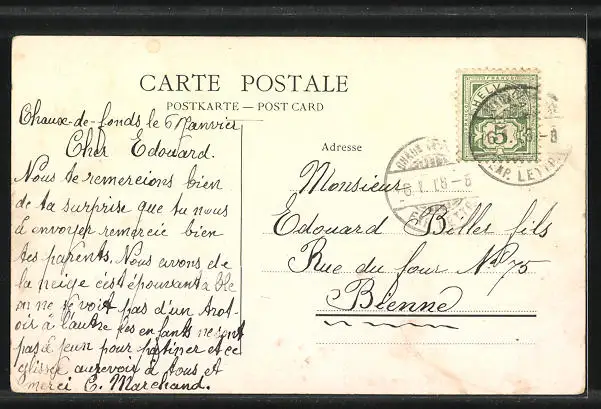 CARTE POSTALE
POSTKARTE — POST CARD
Chaux-de-fonds le 6 Janvier
Cher Edouard.
Nous te remercions bien
de ta surprise que tu nous
a envoyer remercie bien
tes parents. Nous avons de
la neige c'est épouvantable
on ne se voit pas d'un trot-
oir à l'autre les enfants ne sont
pas à jeun pour patiner et ce
glisser aurevoir à tous et
merci C. Marchand.
Adresse
Monsieur
Edouard Biller fils
Rue du four No 75
Bienne
HELV
FRANCO
5
EXP. LETTR.